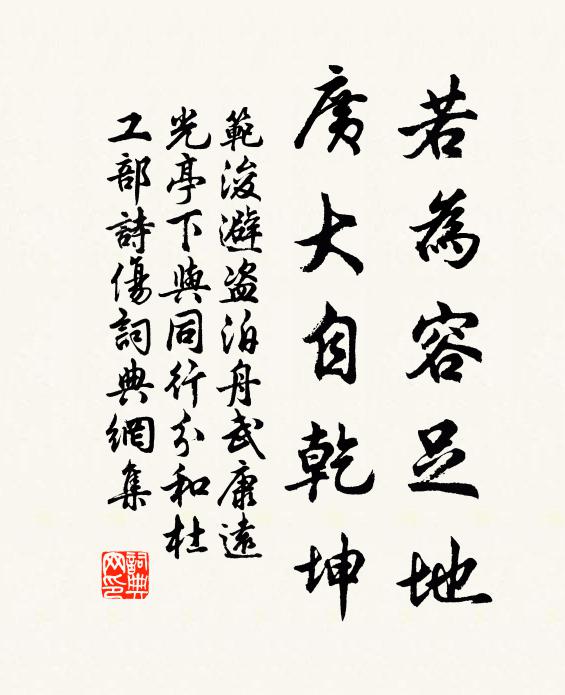 若為容足地
廣大自乾坤
範浚避盜泊舟武康遠
光亭下與同行分和杜
工部詩傷詞典網集
詞典
网印